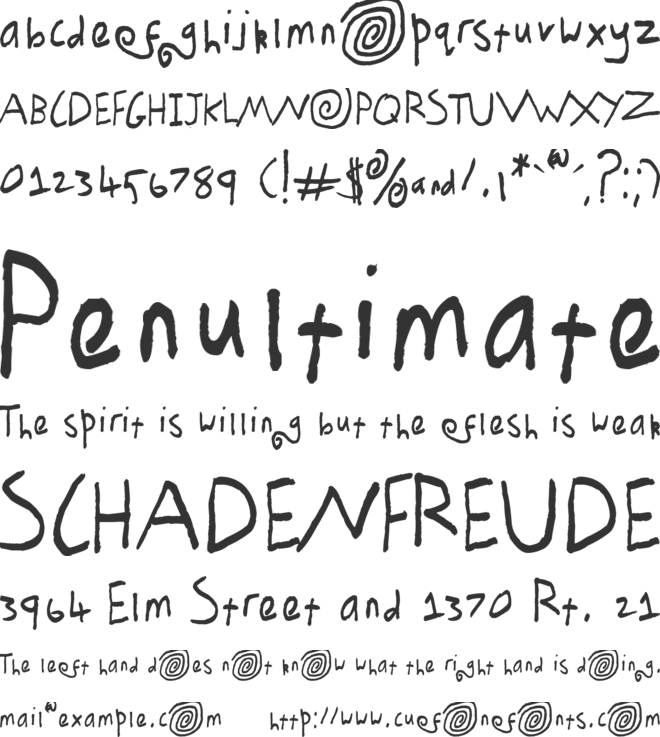 abcdeefghijklmnopqrstuvwxyz
ABCDEFGHIJKLMNOPQRSTUVWXYZ
0123456789 (!#$%and/.,|*`@´,?:;)
Penultimate
The spirit is willing but the flesh is weak
SCHADENFREUDE
3964 Elm Street and 1370 Rt. 21
The left hand does not know what the right hand is doing.
mail@example.com http://www.cuefonfonts.com